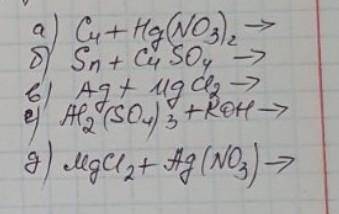 а) Cu + Hg(NO₃)₂ →
б) Sn + CuSO₄ →
в) Ag + MgCl₂ →
г) Al₂(SO₄)₃ + KOH →
д) MgCl₂ + Ag(NO₃) →